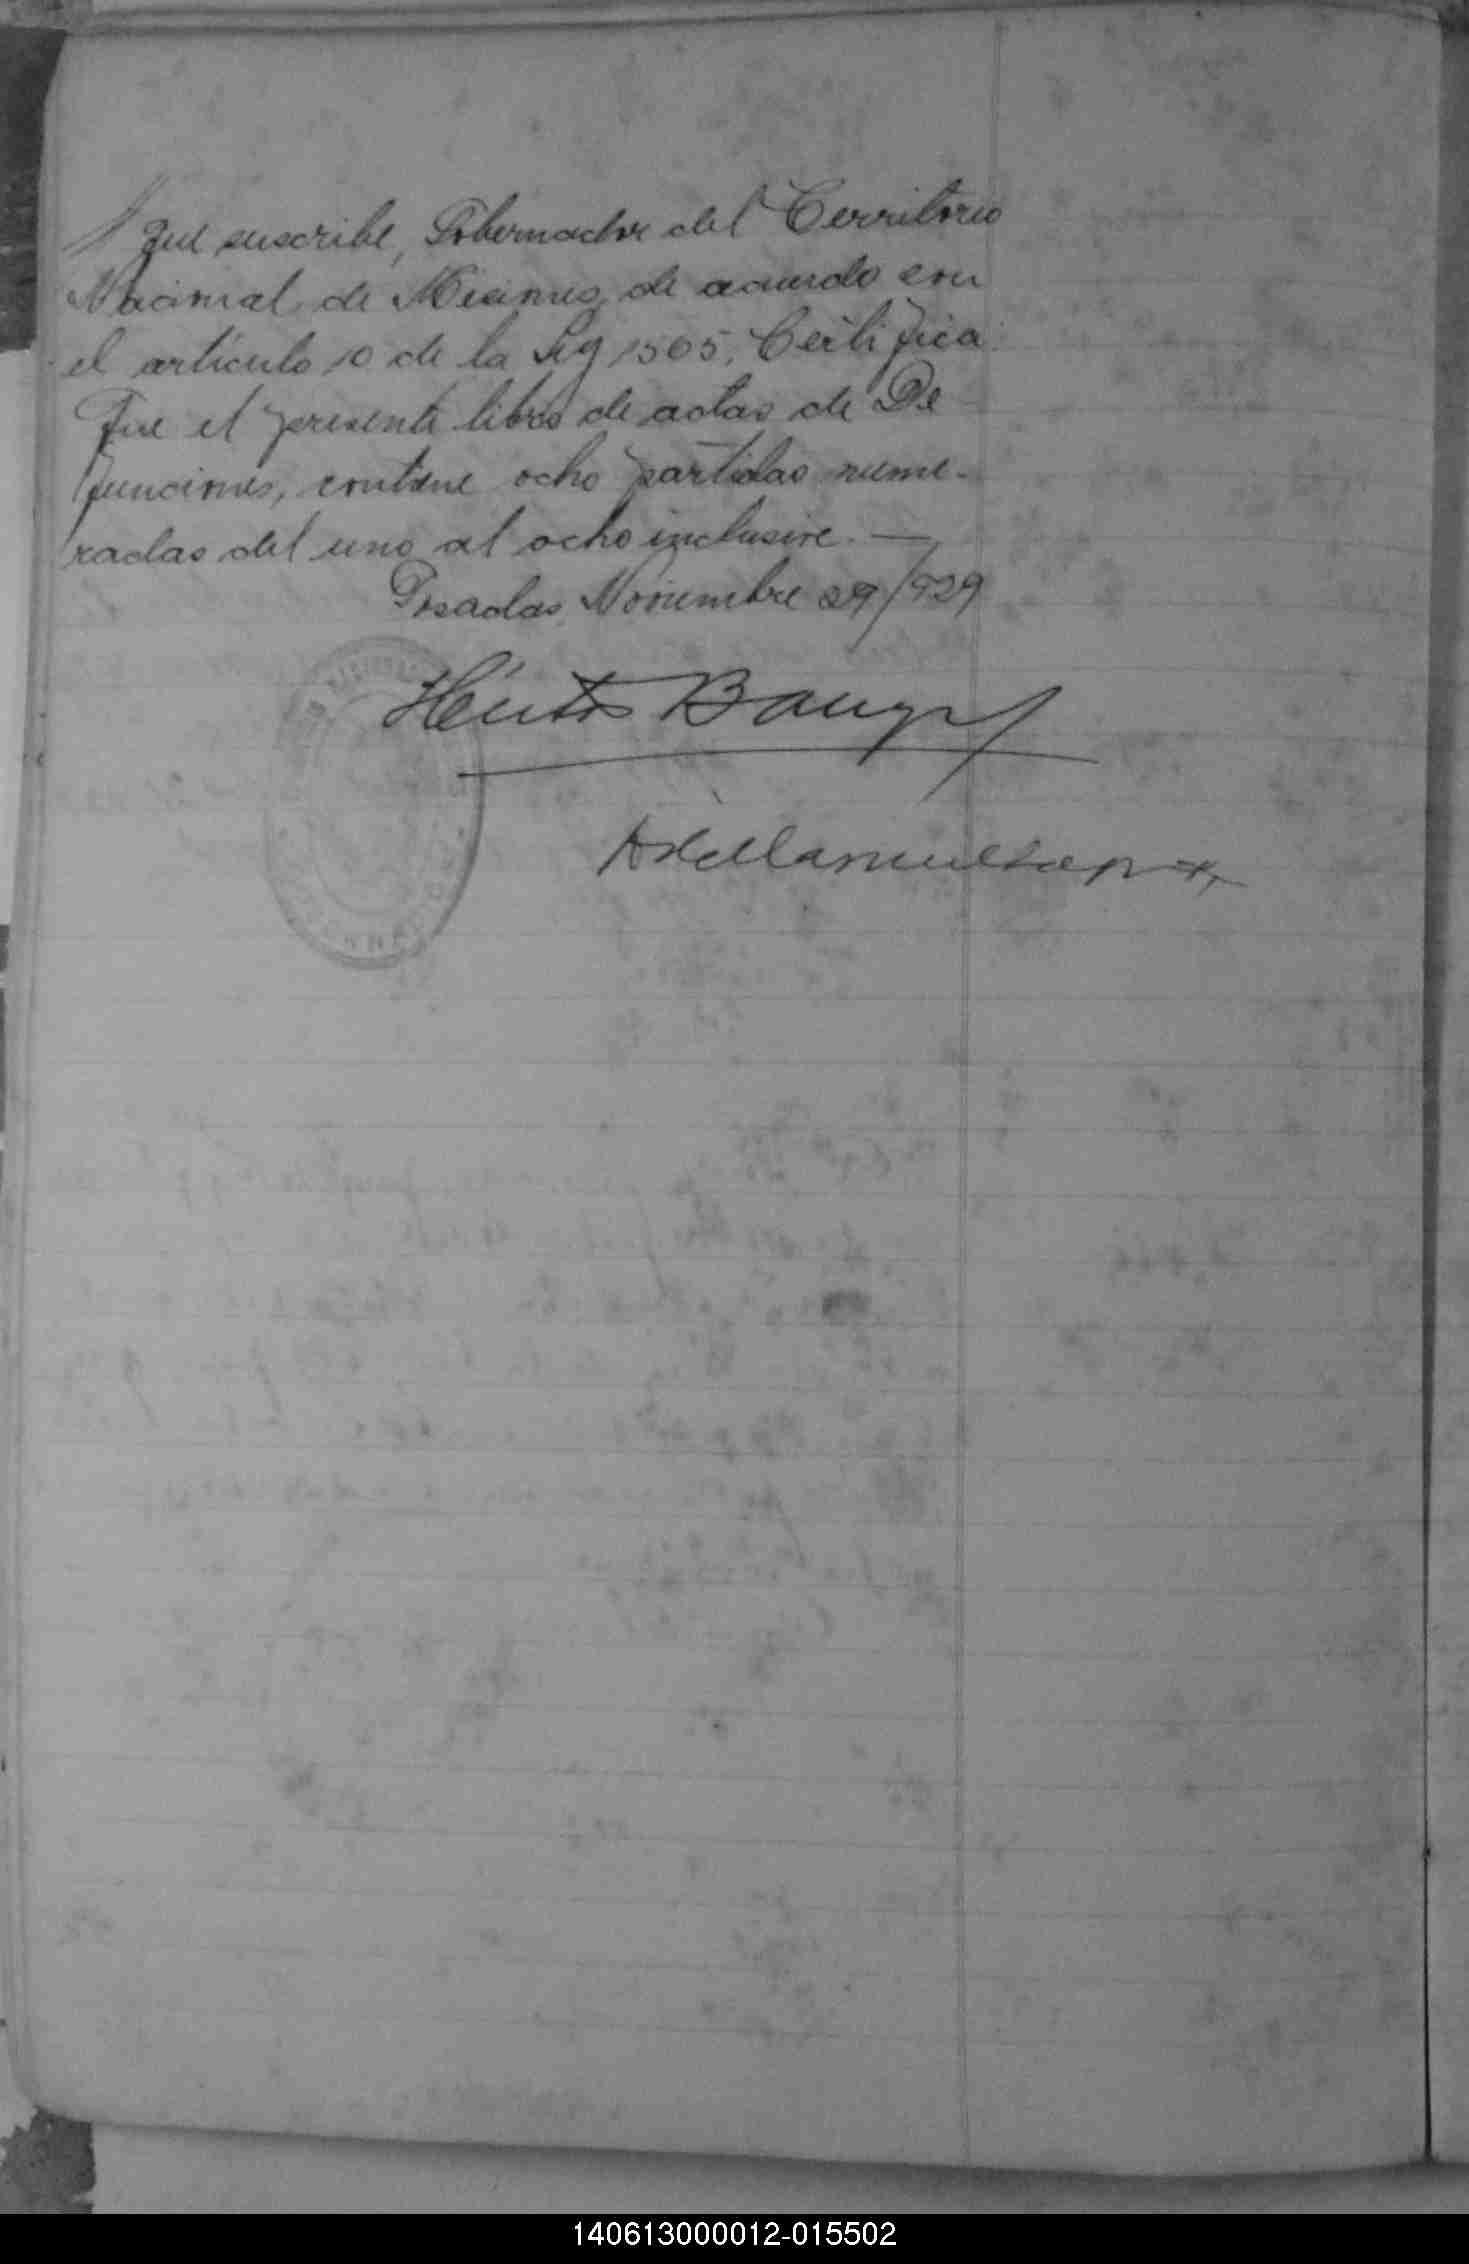 que suscribe, Gobernador del Territorio
Nacional de Misiones, de acuerdo con
el artículo 10 de la Ley 1565, Certifica:
Que el presente libro de actas de De
funciones, contiene ocho partidas nume-
radas del uno al ocho inclusive. —
Posadas, Noviembre 29/929
Héctor Barreyro
140613000012-015502